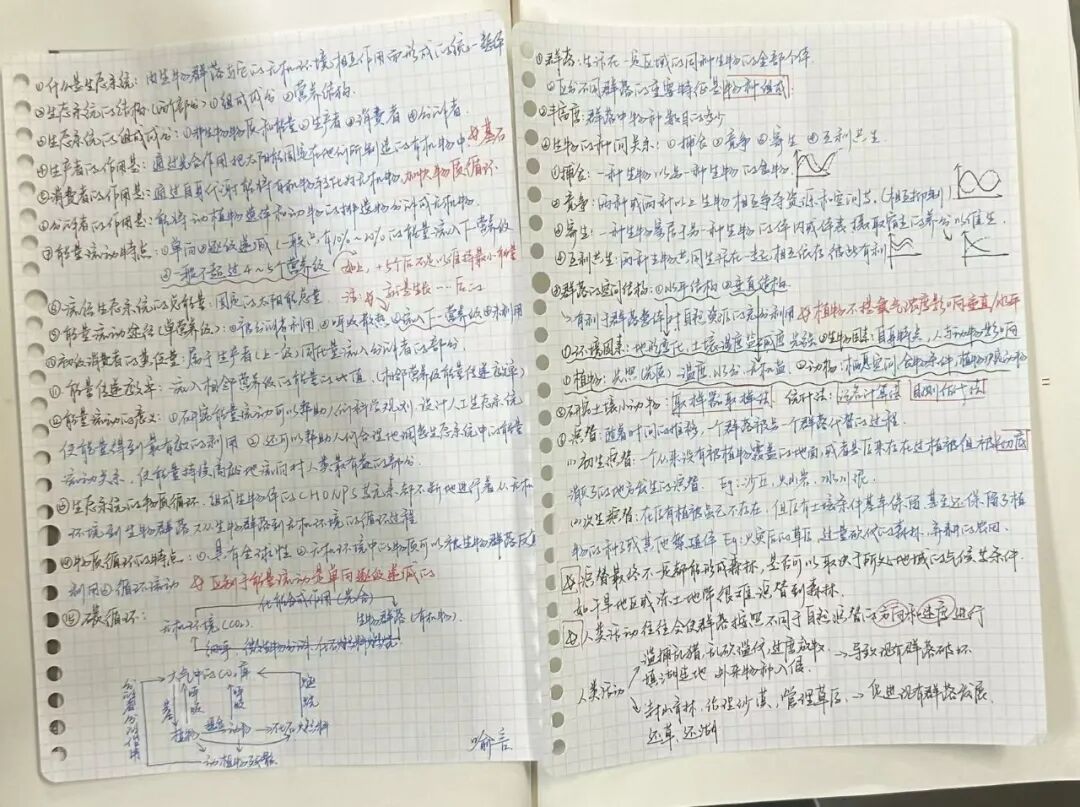 ①什么是生态系统:由生物群落与它的无机环境相互作用而形成的统一整体
②生态系统的结构(两部分)①组成成分 ②营养结构
③生态系统的组成成分:①非生物物质和能量②生产者③消费者④分解者
④生产者的作用是:通过光合作用把太阳能固定在他们所制造的有机物中 基石
⑤消费者的作用是:通过自身代谢能将有机物转化为无机物,加快物质循环
⑥分解者的作用是:能将动植物遗体和动物的排遗物分解成无机物
⑦能量流动特点:①单向②逐级递减(一般只有10%~20%的能量流入下一营养级
③一般不超过4~5个营养级
⑧流经生态系统的总能量:固定的太阳能总量
⑨能量流动途径(单营养级):①被分解者利用②呼吸散热③流入下一营养级④未利用
⑩初级消费者的粪便量:属于生产者(上一级)同化量流入分解者的部分
⑪能量传递效率:流入相邻营养级的能量的比值(相邻营养级能量传递效率)
⑫能量流动的意义:①研究能量流动可以帮助人们科学规划、设计人工生态系统
使能量得到最有效的利用 ②还可以帮助人们合理地调整生态系统中的能量
流动关系,使能量持续高效地流向对人类最有益的部分
⑬生态系统的物质循环:组成生物体的CHONPS等元素都不断地进行着从无机
环境到生物群落又从生物群落到无机环境的循环过程
⑭物质循环的特点:①具有全球性②无机环境中的物质可以被生物群落反复
利用③循环流动 区别于能量流动是单向逐级递减的
⑮碳循环:
化能合成作用(光合)
无机环境(CO₂) 生物群落(有机物)
大气中的CO₂库
呼吸 呼吸 燃烧
植物 动物 化石燃料
动植物残骸
分解者分解作用
喻言
①群落:生活在一定区域的同种生物的全部个体
区分不同群落的重要特征是物种组成
②丰富度:群落中物种数目的多少
③生物的种间关系:①捕食②竞争③寄生④互利共生
①捕食:一种生物以另一种生物为食物
②竞争:两种或两种以上生物相互争夺资源和空间等(相互抑制)
③寄生:一种生物寄居于另一种生物的体内或体表,摄取宿主的养分以维生
④互利共生:两种生物共同生活在一起,相互依存,彼此有利
④群落的空间结构:①水平结构②垂直结构
有利于群落整体对自然资源的充分利用
①环境因素:地形变化,土壤湿度盐碱度,光强②生物因素:自身特点,人与动物影响
①植物:光照(强度),温度,水分,无机盐 ②动物:栖息空间,食物条件
⑤研究土壤小动物:取样器取样法 统计法:记名计算法 目测估计法
⑥演替:随着时间的推移,一个群落被另一个群落代替的过程
(1)初生演替:一个从来没有被植物覆盖的地面,或者是原来存在过植被但被彻底
消灭了的地方发生的演替 Eg:沙丘,火山岩,冰川泥
(2)次生演替:在原有植被虽已不存在,但原有土壤条件基本保留甚至还保留了植
物的种子或其他繁殖体 Eg:火灾后的草原,过量砍伐的森林,弃耕的农田
演替最终不一定都能形成森林,是否可以取决于所处地域的气候等条件
如干旱地区或冻土地带很难演替到森林
人类活动往往会使群落按照不同于自然演替的方向和速度进行
滥捕乱猎,乱砍滥伐,过度放牧 → 导致现有群落破坏
填湖造地 外来物种入侵
人类活动
封山育林,治理沙漠,管理草原 → 促进现有群落发展
还草、还湖